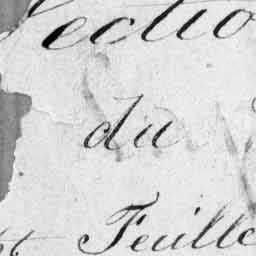 Sectio
du
Feuille